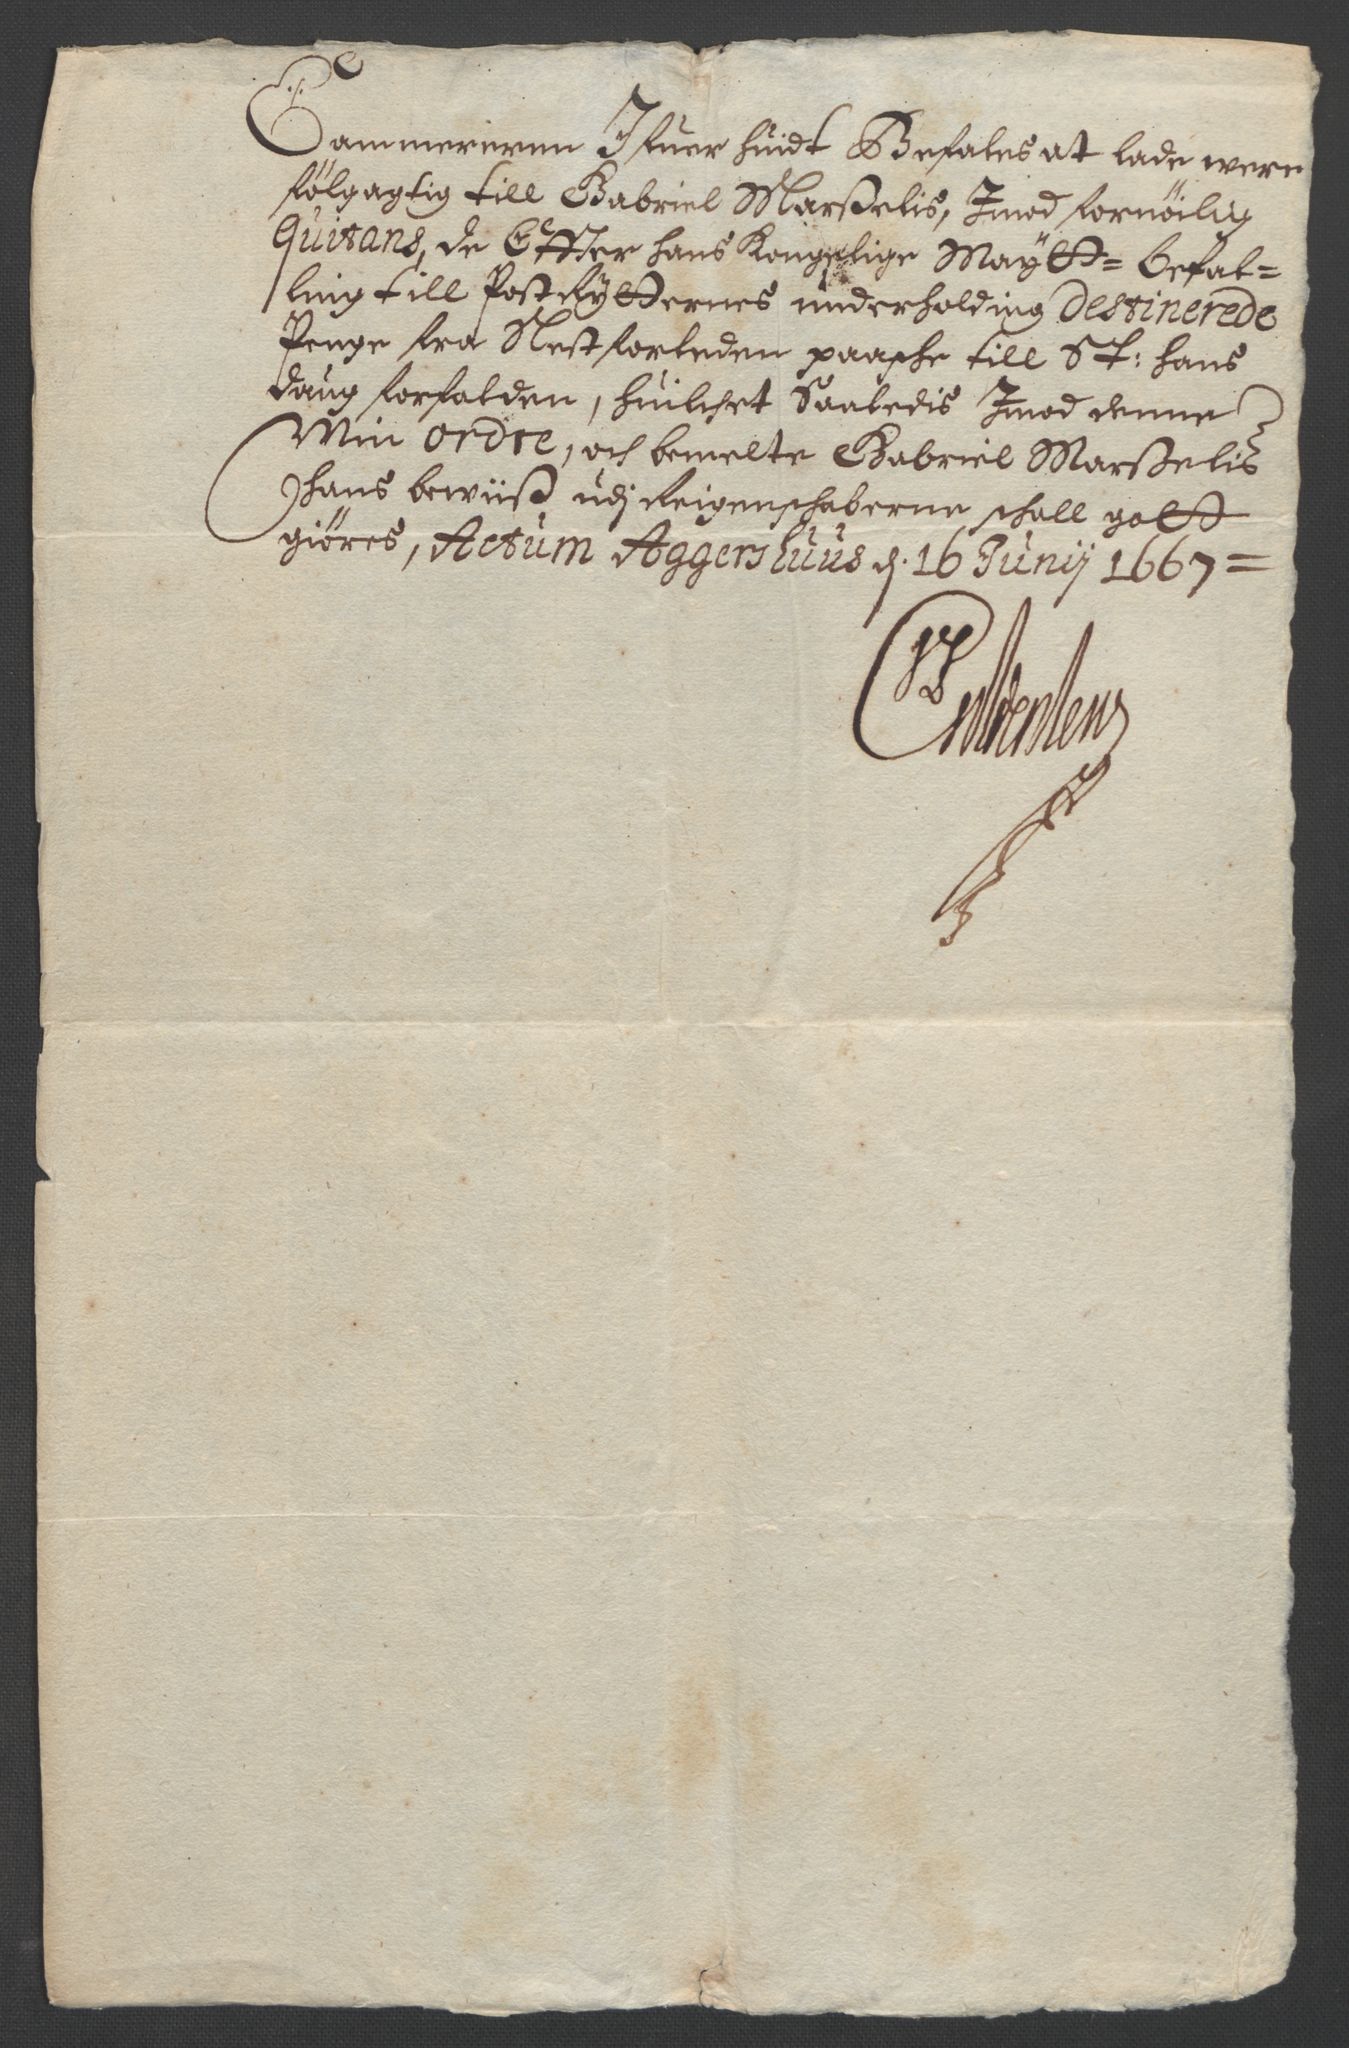 Cammereren Ifuer huidt Befales at lade were
følgagtig till Gabriel Marßelis, Imod fornöilig
Quitans, de Effter hans Kongelige Maÿtt= befal=
ling till Postrÿtternes underholding Destinerede
Penge fra Nestforleden paasche till St: Hans
daug forfalden, huilchet Saaledis Imod denne
Min ordre, och bemelte Gabriel Marßelis
hans bewiiß udj Reigenschaberne schall gott
giöres, Actum Aggershuus d. 16 Junij 1667=
Gyldenleuf